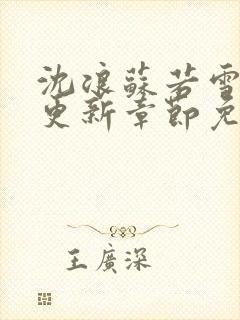 沈浪蘇若雪
更新章節免
王廣深